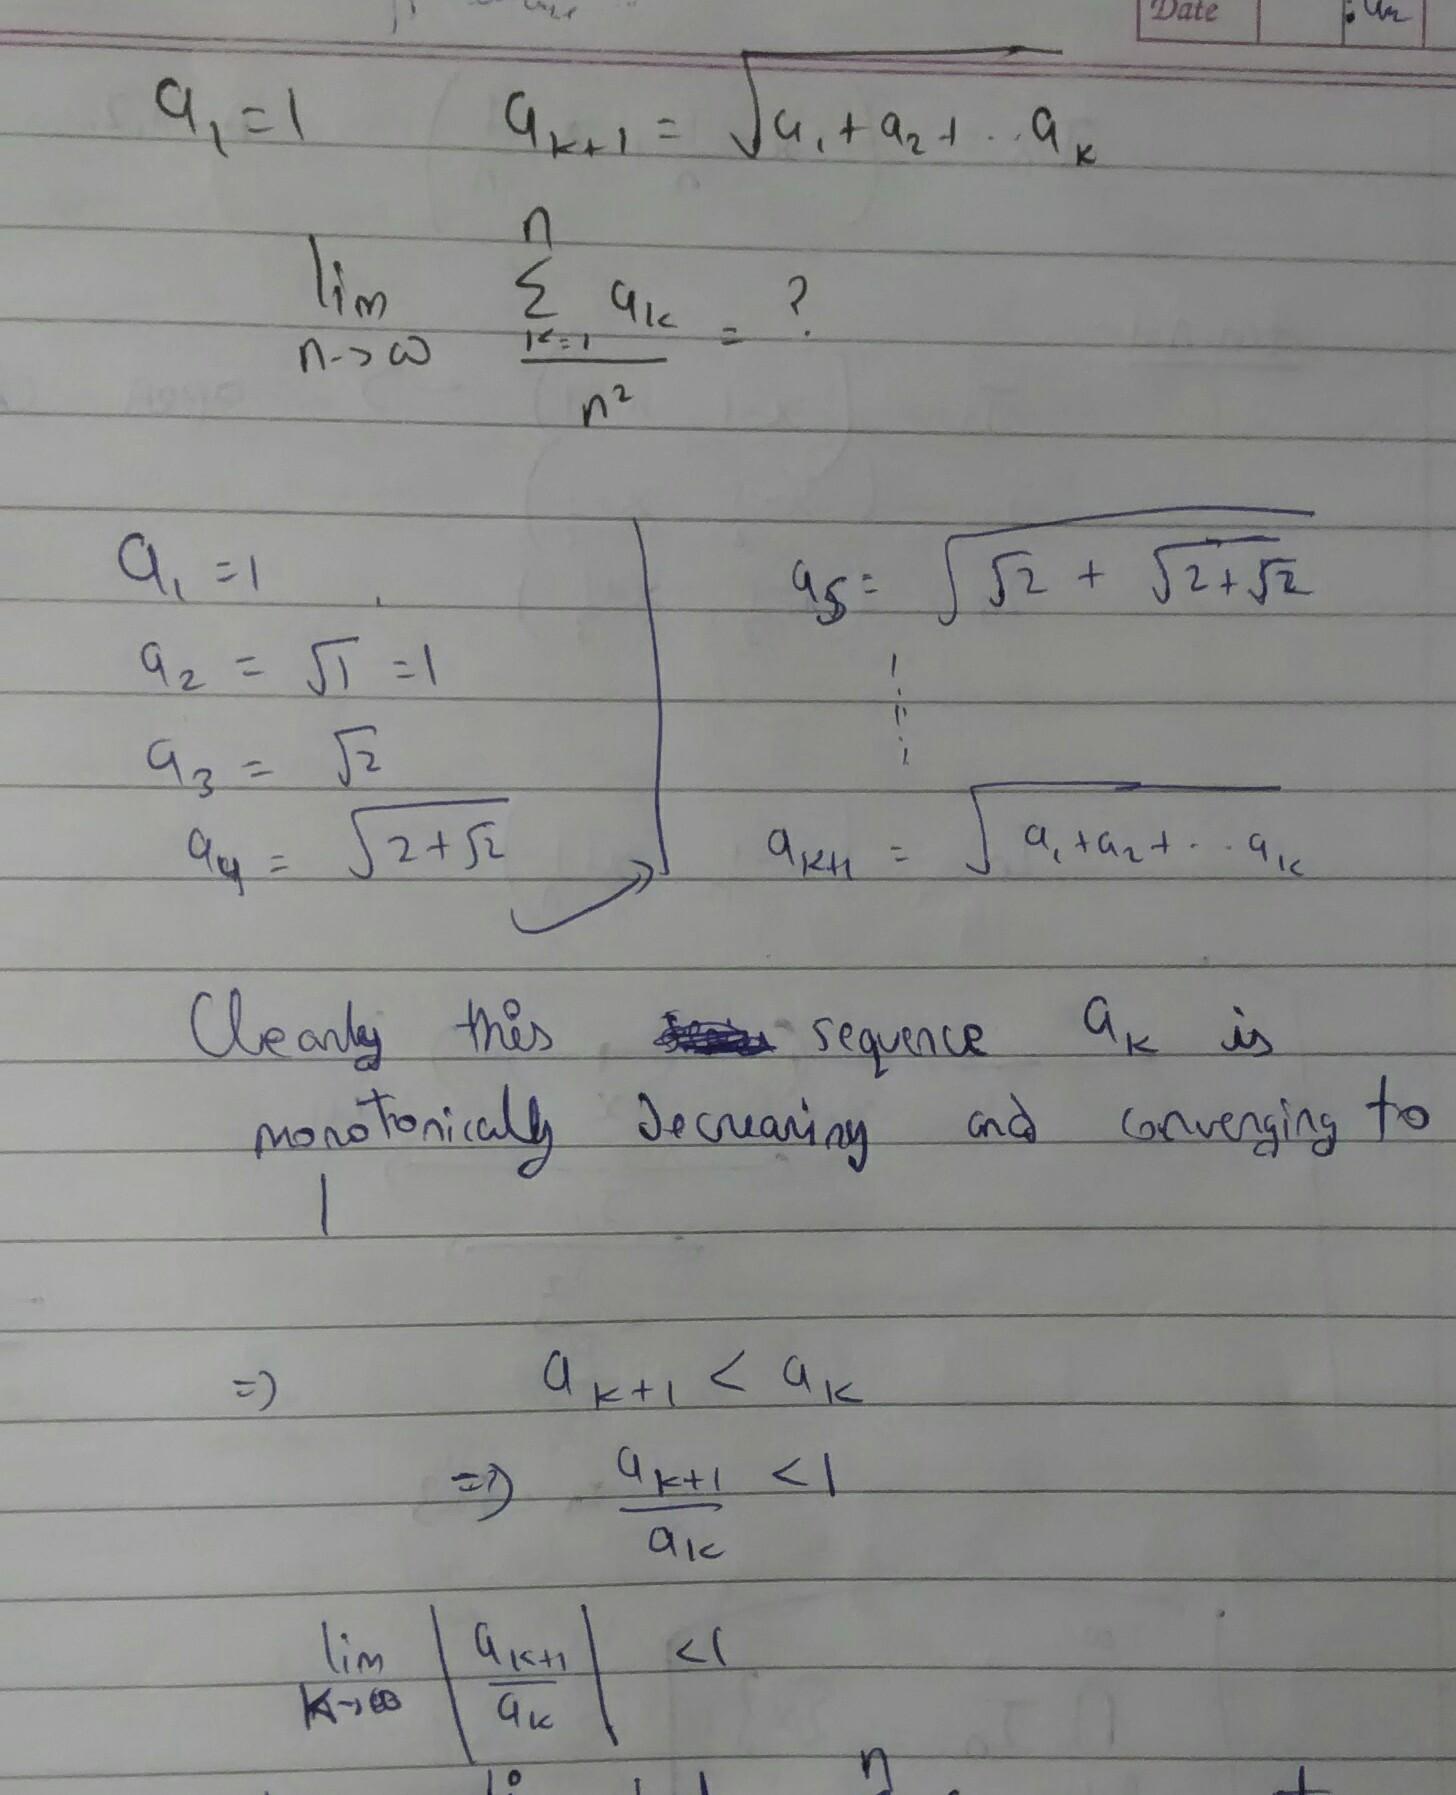 Date
a₁ = 1    a_{k+1} = √(a₁ + a₂ + .. a_k)
lim_{n→∞} (Σ_{k=1}^{n} a_k) / n² = ?
a₁ = 1
a₂ = √1 = 1
a₃ = √2
a₄ = √(2+√2)
a₅ = √(√2 + √(2+√2))
a_{k+1} = √(a₁ + a₂ + .. a_k)
Clearly this sequence a_k is
monotonically decreasing and converging to
1
⇒ a_{k+1} < a_k
⇒ a_{k+1} / a_k < 1
lim_{k→∞} | a_{k+1} / a_k | < 1